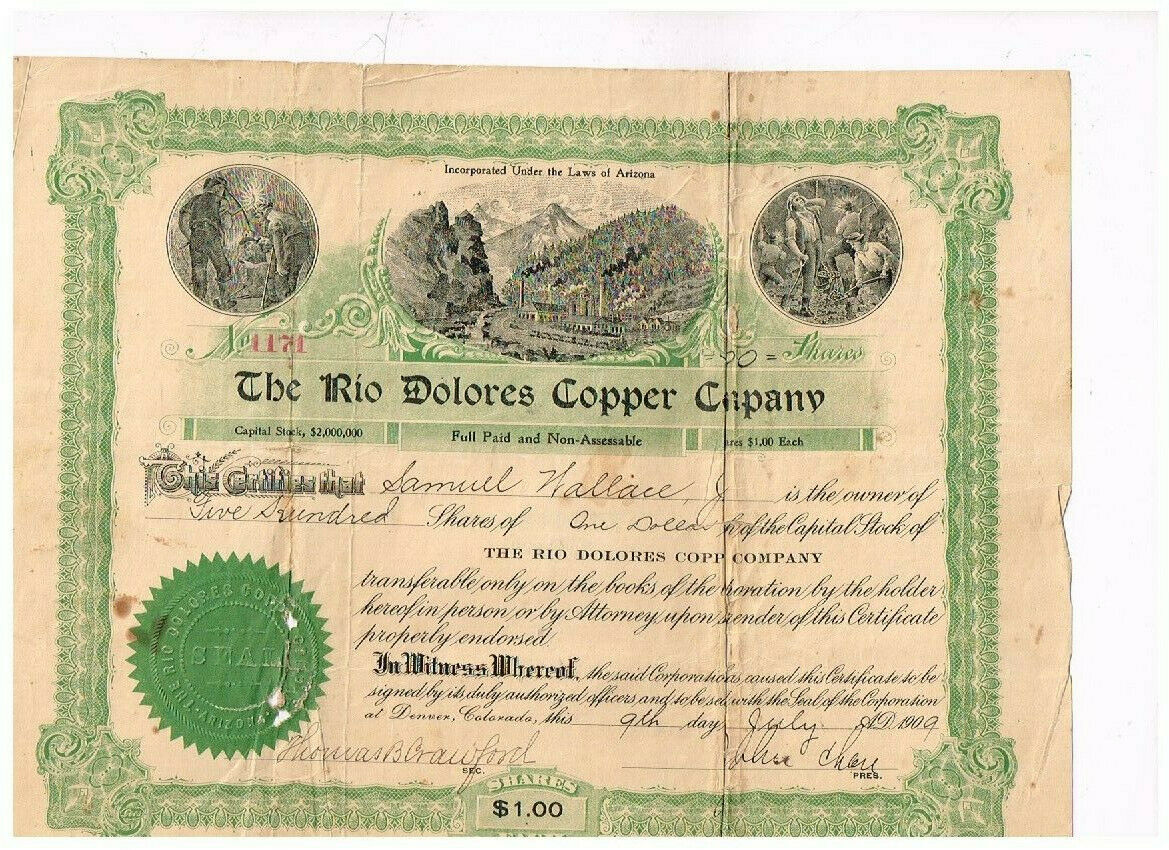 Incorporated Under the Laws of Arizona
No 1171
00 = Shares
The Rio Dolores Copper Cpany
Capital Stock, $2,000,000 Full Paid and Non-Assessable ares $1.00 Each
This Certifies that Samuel Wallace, J is the owner of
Five Hundred Shares of One Dollar of the Capital Stock of
THE RIO DOLORES COPP COMPANY
transferable only on the books of the oration by the holder
hereof in person or by Attorney upon render of this Certificate
properly endorsed.
In Witness Whereof, the said Corporation has caused this Certificate to be
signed by its duly authorized officers and to be sed with the Seal of the Corporation
at Denver, Colorado, this 9th day July A.D. 1909
RIO DOLORES COPP
SEAL
ARIZONA
Thomas B Crawford
SEC.
PRES.
SHARES
$1.00